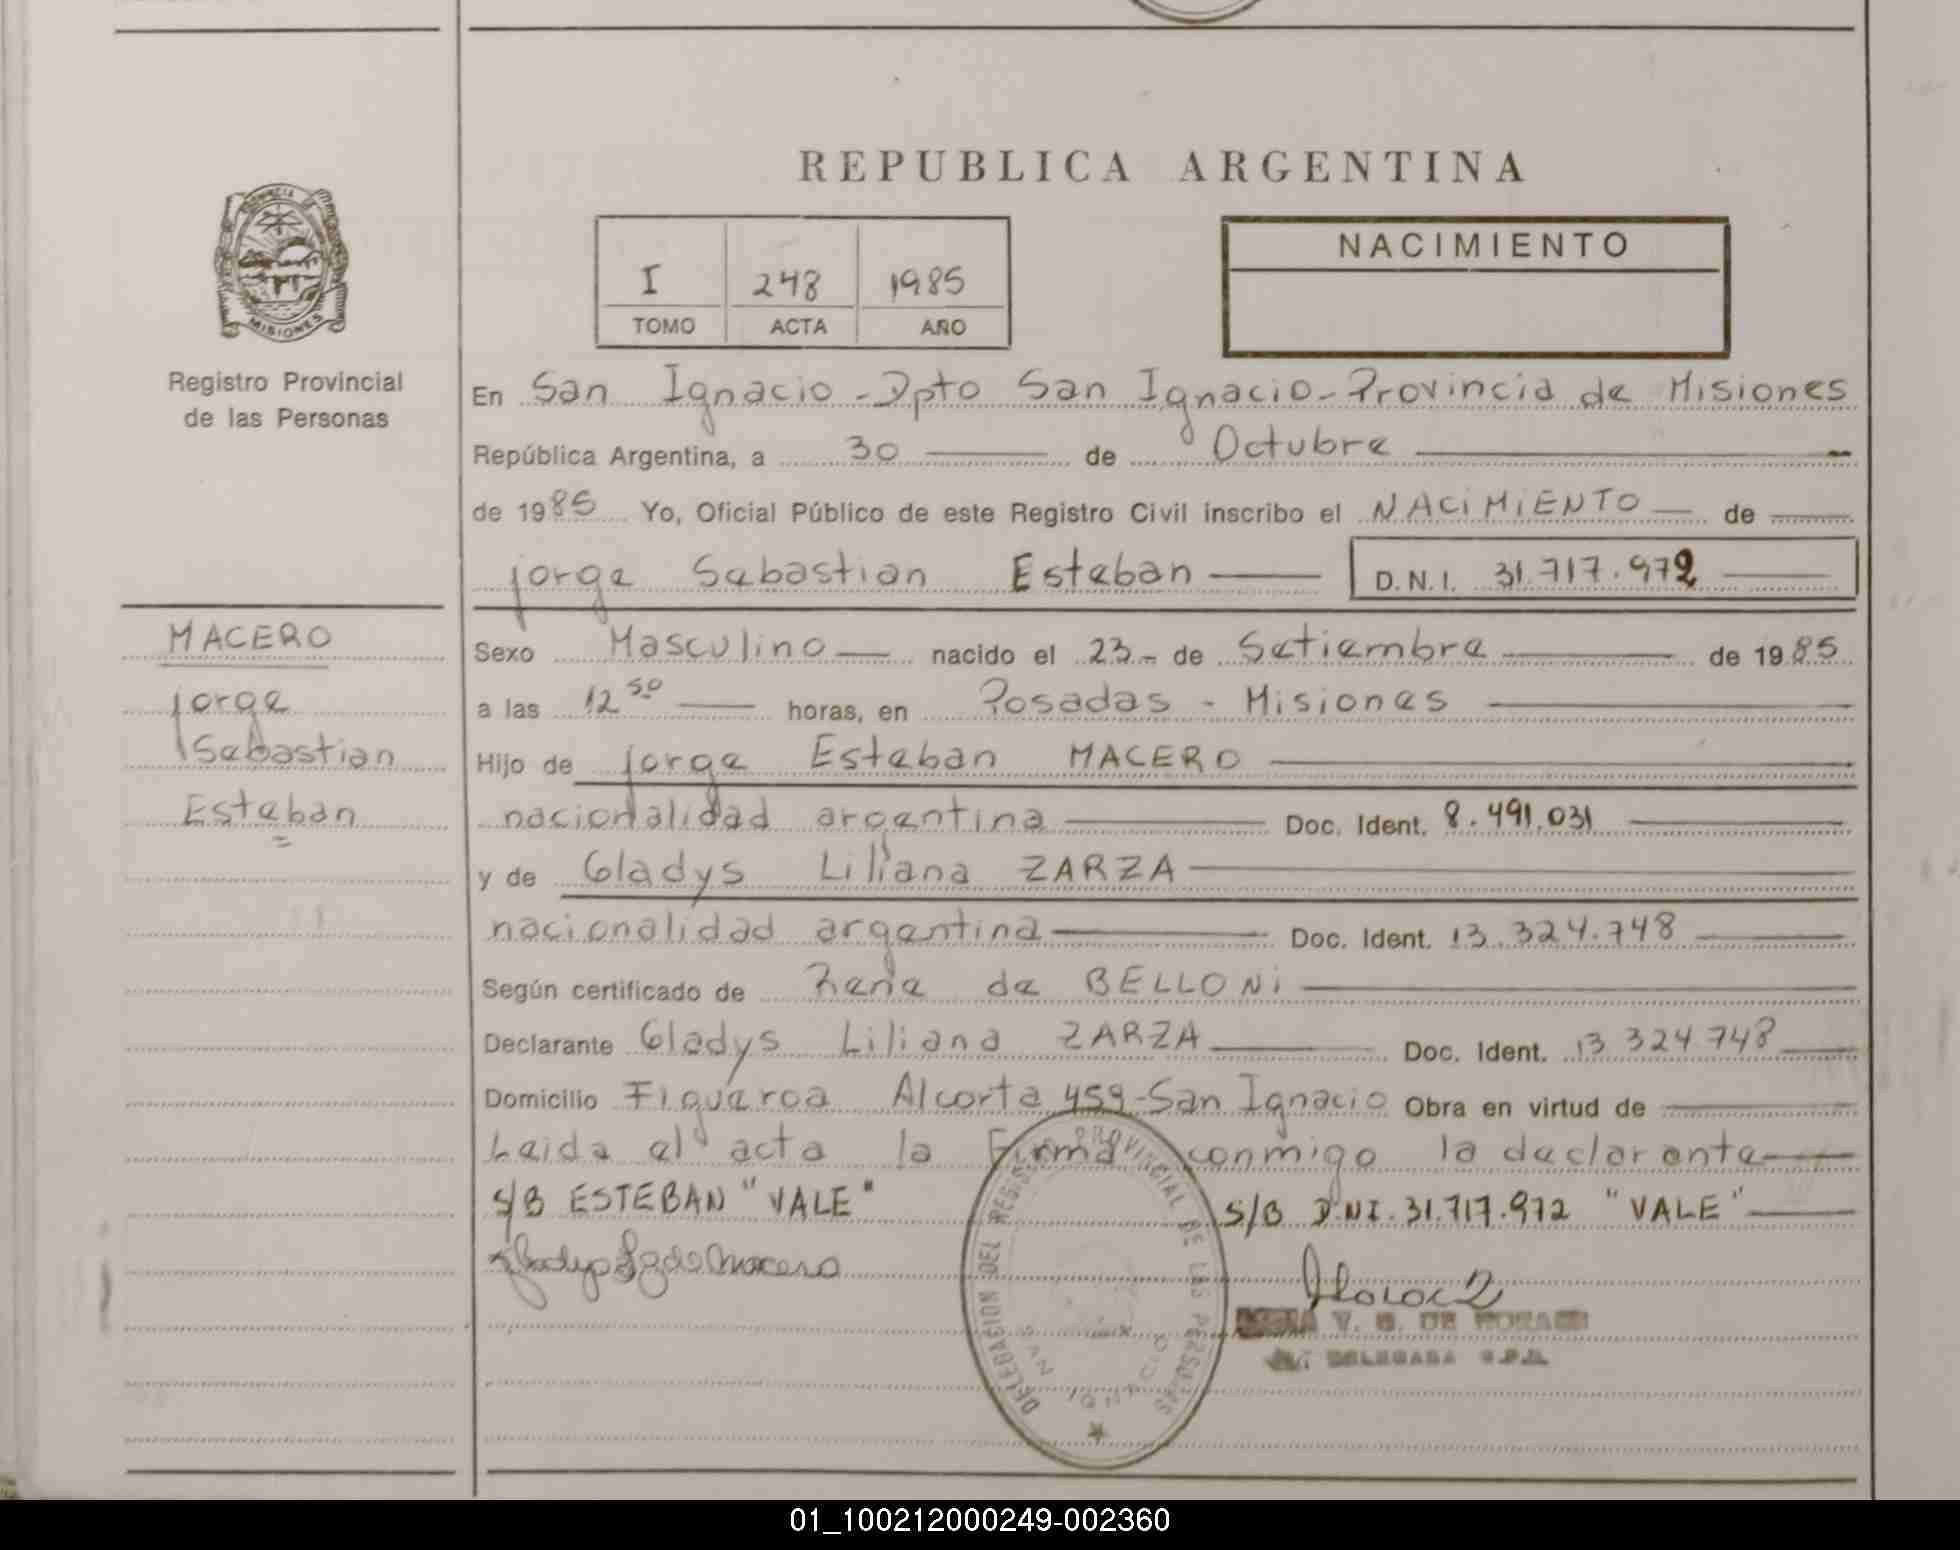 REPUBLICA ARGENTINA
PROVINCIA
MISIONES
Registro Provincial
de las Personas
I 248 1985
TOMO ACTA AÑO
NACIMIENTO
En San Ignacio - Dpto San Ignacio - Provincia de Misiones
República Argentina, a 30 de Octubre
de 1985 Yo, Oficial Público de este Registro Civil inscribo el NACIMIENTO de
Jorge Sebastian Esteban D.N.I. 31.717.972
MACERO
Jorge
Sebastian
Esteban
Sexo Masculino nacido el 23 de Setiembre de 1985
a las 12 50 horas, en Posadas - Misiones
Hijo de Jorge Esteban MACERO
nacionalidad argentina Doc. Ident. 8.491.031
y de Gladys Liliana ZARZA
nacionalidad argentina Doc. Ident. 13.324.748
Según certificado de de BELLONI
Declarante Gladys Liliana ZARZA Doc. Ident. 13 324 748
Domicilio Figueroa Alcorta 459 - San Ignacio Obra en virtud de
Leida el acta la Firma conmigo la declarante
S/B ESTEBAN "VALE" S/B D.N.I. 31.717.972 "VALE"
DELEGACION DEL REGISTRO PROVINCIAL DE LAS PERSONAS
SAN IGNACIO
V. DE
DELEGADA
01_100212000249-002360